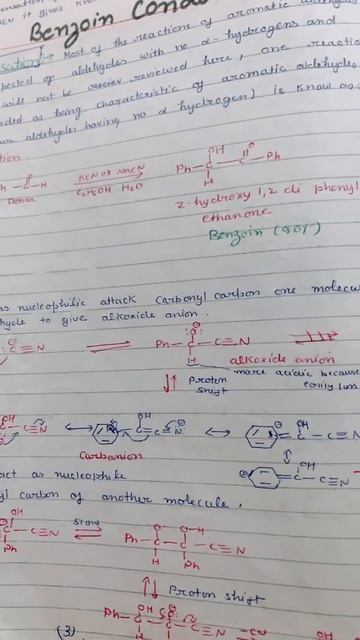 Benzoin Cond
Most of the reactions of aromatic
of aldehydes with no α-hydrogens and
will not be reviewed here, one reactio
as being characteristic of aromatic aldehydes
aldehydes having no α hydrogen) is know as
tion.
H KCN or NaCN Ph - C - C - Ph
C₂H₅OH · H₂O OH O
H
2-hydroxy 1,2 di phenyl
ethanone
Benzoin (90%)
as nucleophilic attack carbonyl carbon one molecul
hyde to give alkoxide anion.
C≡N ⇌ Ph - C - C≡N
H alkoxide anion
Proton more acidic because
shift easily loss
OH
C≡N ↔ C=N ↔ C - C≡N
Carbanion
OH
act as nucleophile C - C
yl carbon of another molecule.
OH slow
C - C≡N ⇌ Ph - C - C - C≡N
Ph H Ph
Proton shift
Ph
(3)